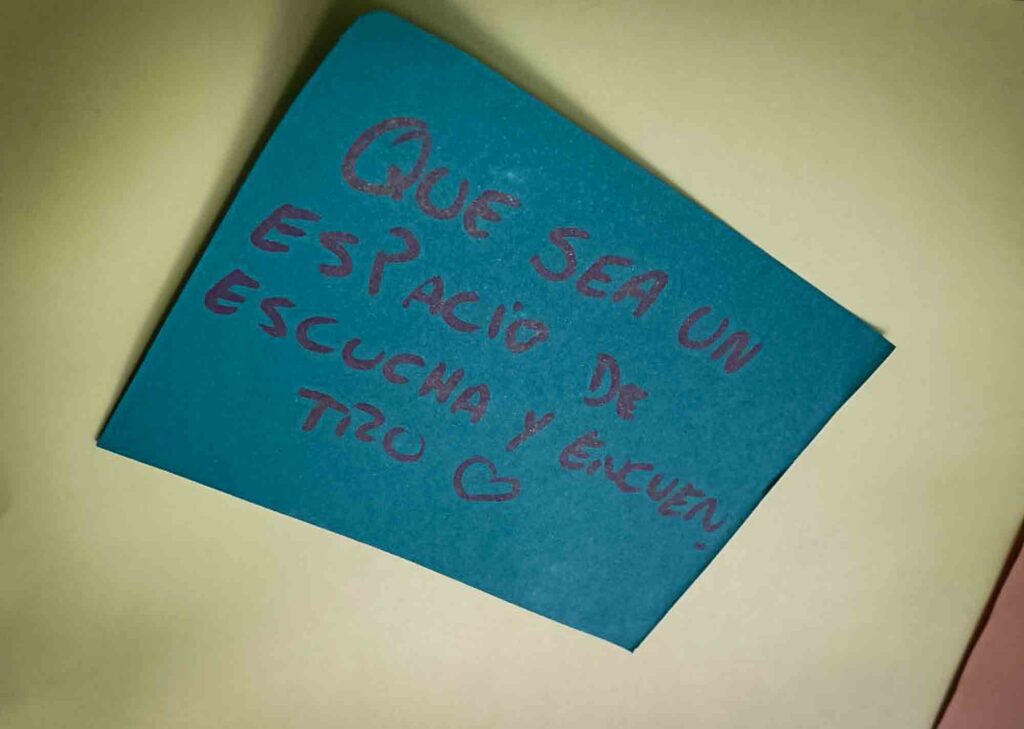 QUE SEA UN
ESPACIO DE
ESCUCHA Y ENCUEN.
TRO ♡